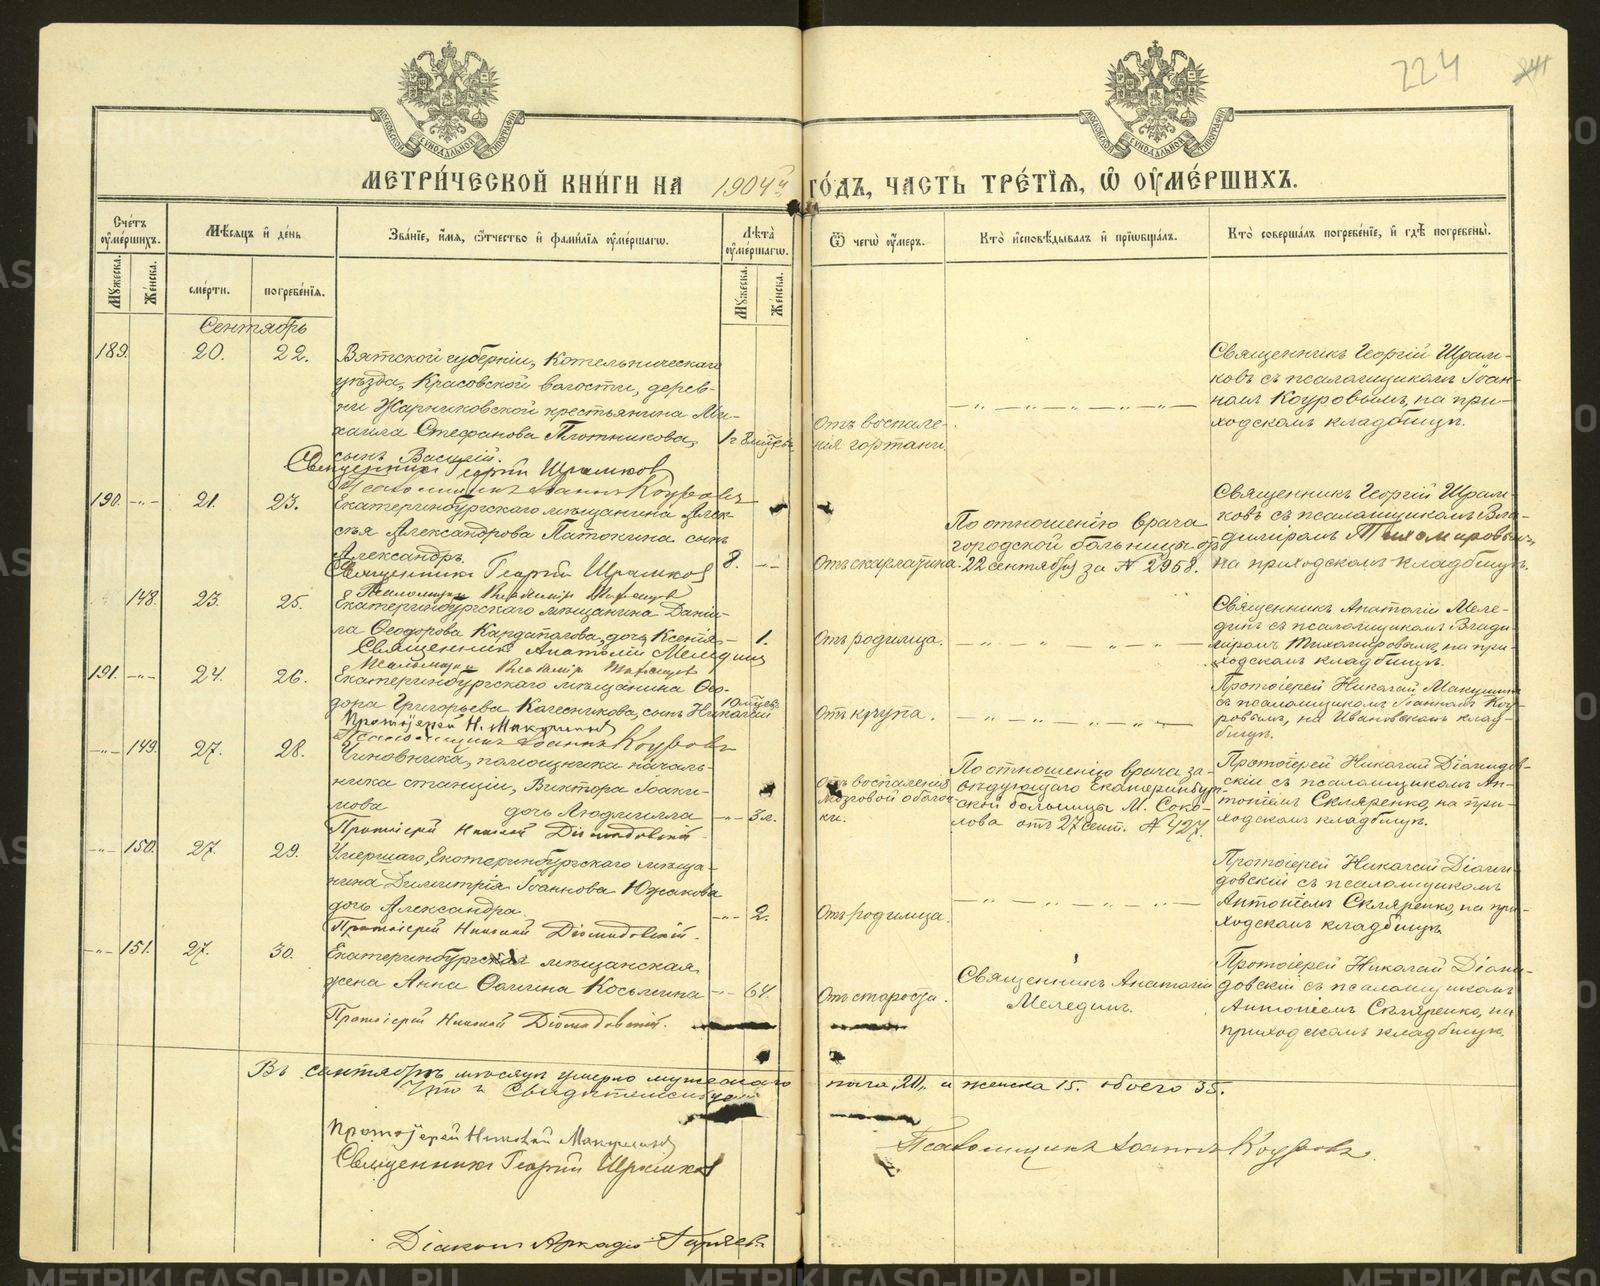 224
МОСКОВСКОЙ СѴНОДАЛЬНОЙ ТИПОГРАФІИ
МОСКОВСКОЙ СѴНОДАЛЬНОЙ ТИПОГРАФІИ
МЕТРИ́ЧЕСКОЙ КНИ́ГИ НА 1904й ГО́ДЪ, ЧАСТЬ ТРЕ́ТІЯ, Ѡ ОУМЕ́РШИХЪ.
Сче́тъ оуме́ршихъ.
Мужеска.
Же́нска.
Мѣ́сяцъ и де́нь
сме́рти.
погребе́нія.
Зва́ніе, и́мя, о́тчество и фами́лія оуме́ршагѡ.
Лѣта̀ оуме́ршагѡ.
Мужеска.
Же́нска.
Ѿ чегѡ̀ оу́меръ.
Кто̀ исповѣ́дывалъ и пріѡбща́лъ.
Кто̀ соверша́лъ погребе́ніе, и гдѣ̀ погребены̀.
Сентябрь
189.
20.
22.
Вятской губерніи, Котельническаго
уѣзда, Красовской волости, дерев-
ни Жарниковской крестьянина Ми-
хаила Стефанова Плотникова,
сынъ Василій.
Священникъ Георгій Шрамковъ
Псаломщикъ Іоаннъ Коуровъ
Отъ воспале-
нія гортани.
Священникъ Георгій Шрам-
ковъ съ псаломщикомъ Іоан-
номъ Коуровымъ, на при-
ходскомъ кладбищѣ.
190. -"-
21.
23.
Екатеринбургскаго мѣщанина Алек-
сѣя Александрова Патокина сынъ
Александръ.
Священникъ Георгій Шрамковъ
8. -"-
Отъ скарлатины.
По отношенію врача
городской больницы отъ
22 сентября за № 2958.
Священникъ Георгій Шрам-
ковъ съ псаломщикомъ Вла-
диміромъ Тихомировымъ,
на приходскомъ кладбищѣ.
148.
23.
25.
Екатеринбургскаго мѣщанина Даніи-
ла Ѳеодорова Кардаполова, дочь Ксенія
Священникъ Анатолій Мелединъ
1.
Отъ родимца.
Священникъ Анатолій Меле-
динъ съ псаломщикомъ Влади-
міромъ Тихомировымъ, на при-
ходскомъ кладбищѣ.
191. -"-
24.
26.
Екатеринбургскаго мѣщанина Ѳео-
дора Григорьева Колесникова, сынъ Николай
Протоіерей Н. Макушинъ
Псаломщикъ Іоаннъ Коуровъ
Отъ крупа.
Протоіерей Николай Макушинъ
съ псаломщикомъ Іоанномъ Коу-
ровымъ, на Ивановскомъ клад-
бищѣ.
-"- 149.
27.
28.
Чиновника, помощника началь-
ника станціи, Виктора Іоаки-
мова дочь Людмилла
Протоіерей Николай Діомидовскій.
-"- 3 л.
Отъ воспаленія
мозговой оболоч-
ки.
По отношенію врача за-
вѣдующаго Екатеринбург-
ской больницы М. Соко-
лова отъ 27 сент. № 427.
Протоіерей Николай Діомидов-
скій съ псаломщикомъ Ан-
тоніемъ Скляренко, на при-
ходскомъ кладбищѣ.
-"- 150.
27.
29.
Умершаго, Екатеринбургскаго мѣща-
нина Димитрія Іоаннова Южакова
дочь Александра.
Протоіерей Николай Діомидовскій.
-"- 2.
Отъ родимца.
Протоіерей Николай Діоми-
довскій съ псаломщикомъ
Антоніемъ Скляренко, на при-
ходскомъ кладбищѣ.
-"- 151.
27.
30.
Екатеринбургская мѣщанская
жена Анна Ѳомина Косьмина
Протоіерей Николай Діомидовскій.
-"- 64.
Отъ старости.
Священникъ Анатолій
Мелединъ.
Протоіерей Николай Діоми-
довскій съ псаломщикомъ
Антоніемъ Скляренко, на
приходскомъ кладбищѣ.
Въ сентябрѣ мѣсяцѣ умерло мужескаго пола 20, и женска 15. обоего 35.
Что и свидѣтельствуемъ
Протоіерей Николай Макушинъ
Священникъ Георгій Шрамковъ
Псаломщикъ Іоаннъ Коуровъ.
Діаконъ Аркадій Гаряевъ
METRIKI.GASO-URAL.RU